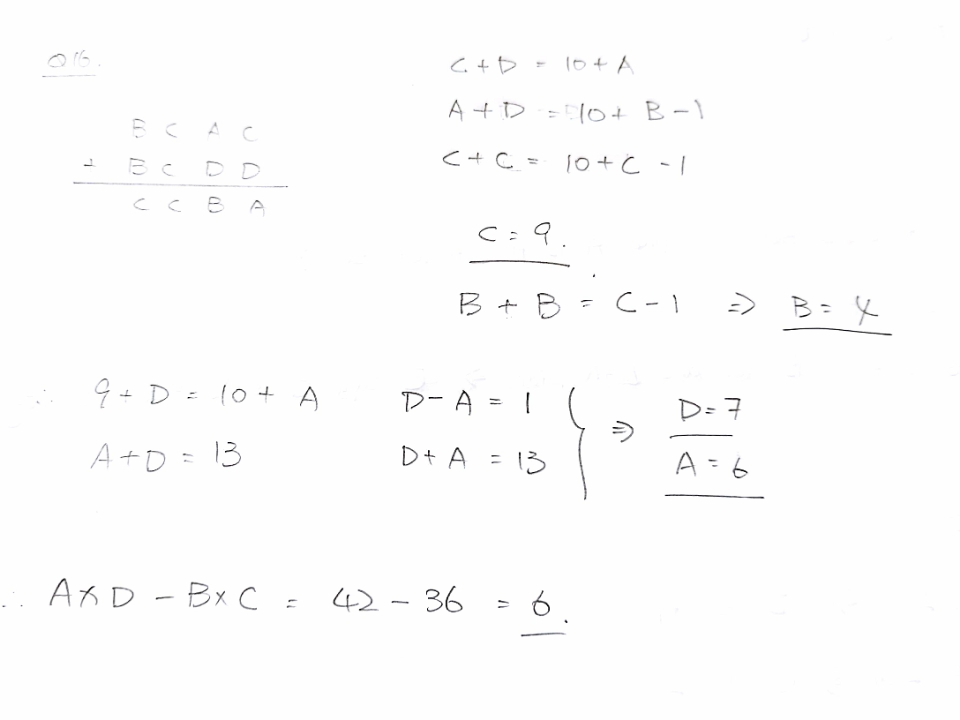 Q16.
B C A C
+ B C D D
C C B A
C + D = 10 + A
A + D = 10 + B - 1
C + C = 10 + C - 1
C = 9.
B + B = C - 1 ⇒ B = 4
∴ 9 + D = 10 + A D - A = 1 } ⇒ D = 7
A + D = 13 D + A = 13 A = 6
∴ A × D - B × C = 42 - 36 = 6.